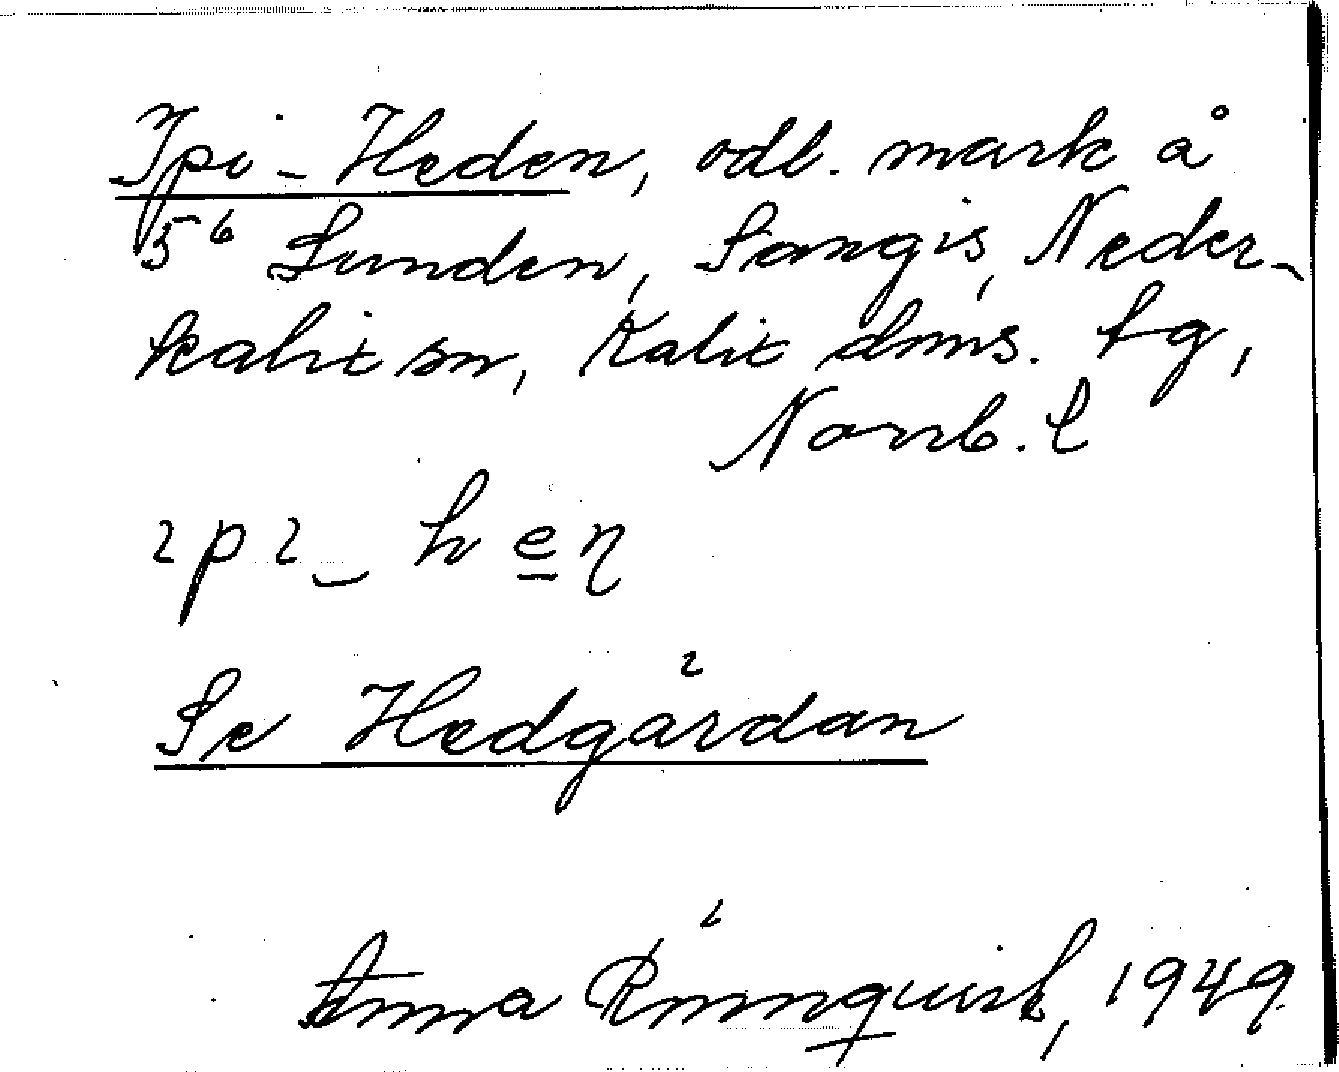 Ipi-Heden, odl. mark å
5⁶ Sunden, Sangis, Neder-
kalix sn, Kalix dms. tg,
Norrb. l
ɩpɩ‿heη
Se Hedgårdan
Anna Rönnquist, 1949